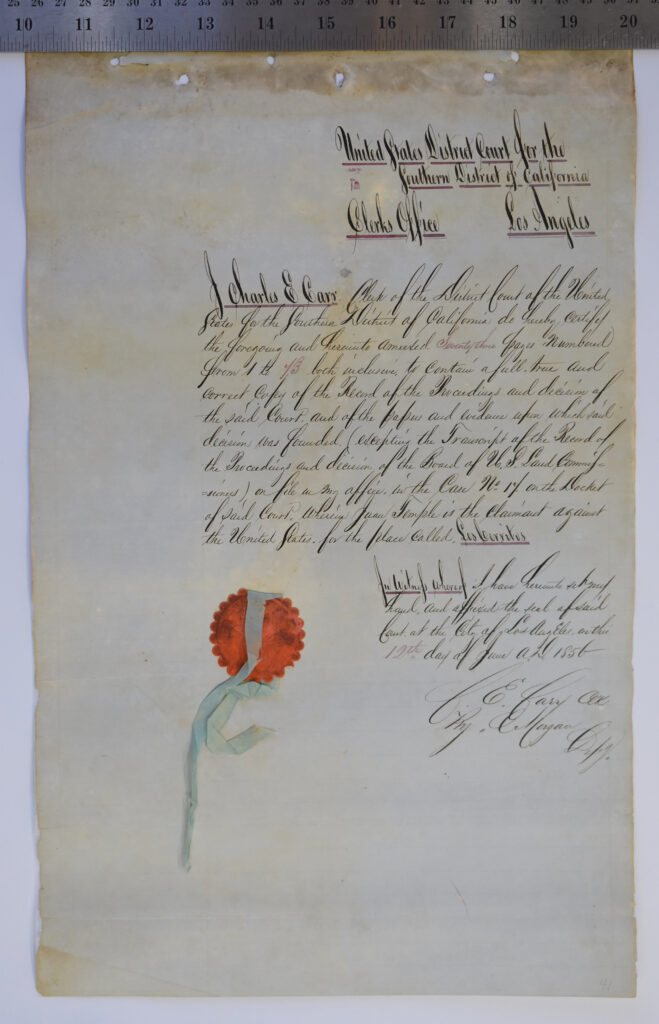 25 26 27 28 29 30 31 32 33 34 35 36 37 38 39 40 41 42 43 44 45 46 47 48 49 50 51
10 11 12 13 14 15 16 17 18 19 20
United States District Court for the
Southern District of California
Clerks Office Los Angeles
I Charles E. Carr Clerk of the District Court of the United
States for the Southern District of California do hereby certify
the foregoing and hereunto annexed Seventy three pages Numbered
from 1 to 73 both inclusive, to contain a full, true and
correct Copy of the Record of the Proceedings and decision of
the said Court, and of the papers and evidence upon which said
decision was founded, (excepting the Transcript of the Record of
the Proceedings and decision of the Board of U. S. Land Commis-
=sioners,) on file in my office, in the Case No. 17 on the Docket
of said Court, wherein Juan Temple is the Claimant against
the United States, for the place called, Los Cerritos
In Witness whereof I have hereunto set my
hand, and affixed the seal of said
Court at the City of Los Angeles, on this
12th day of June A.D. 1856
C. E. Carr Clk
By C Morgan
Depy.
41